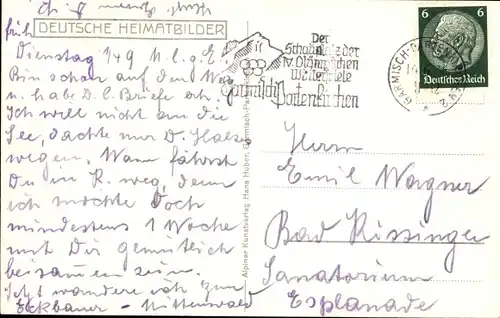 DEUTSCHE HEIMATBILDER
früh
Dienstag 1/49 M. l. g. E.
Bin schon auf dem We
u. habe D. l. Briefe erh.
Ich will nicht an die
See, dachte nur D. Halses
wegen. Wann fährst
Du in K. weg, denn
ich möchte doch
mindestens 1 Woche
mit Dir gemütlich
beisammen sein.
Ich wandere ich zum
Eckbauer - Mittenwald
Der
Schauplatz der
IV. Olympischen
Winterspiele
Garmisch
Partenkirchen
6 6
Deutsches Reich
GARMISCH-PARTENKIRCHEN 2
Alpiner Kunstverlag Hans Huber, Garmisch-Par
Herrn
Emil Wagner
Bad Kissingen
Sanatorium
Esplanade